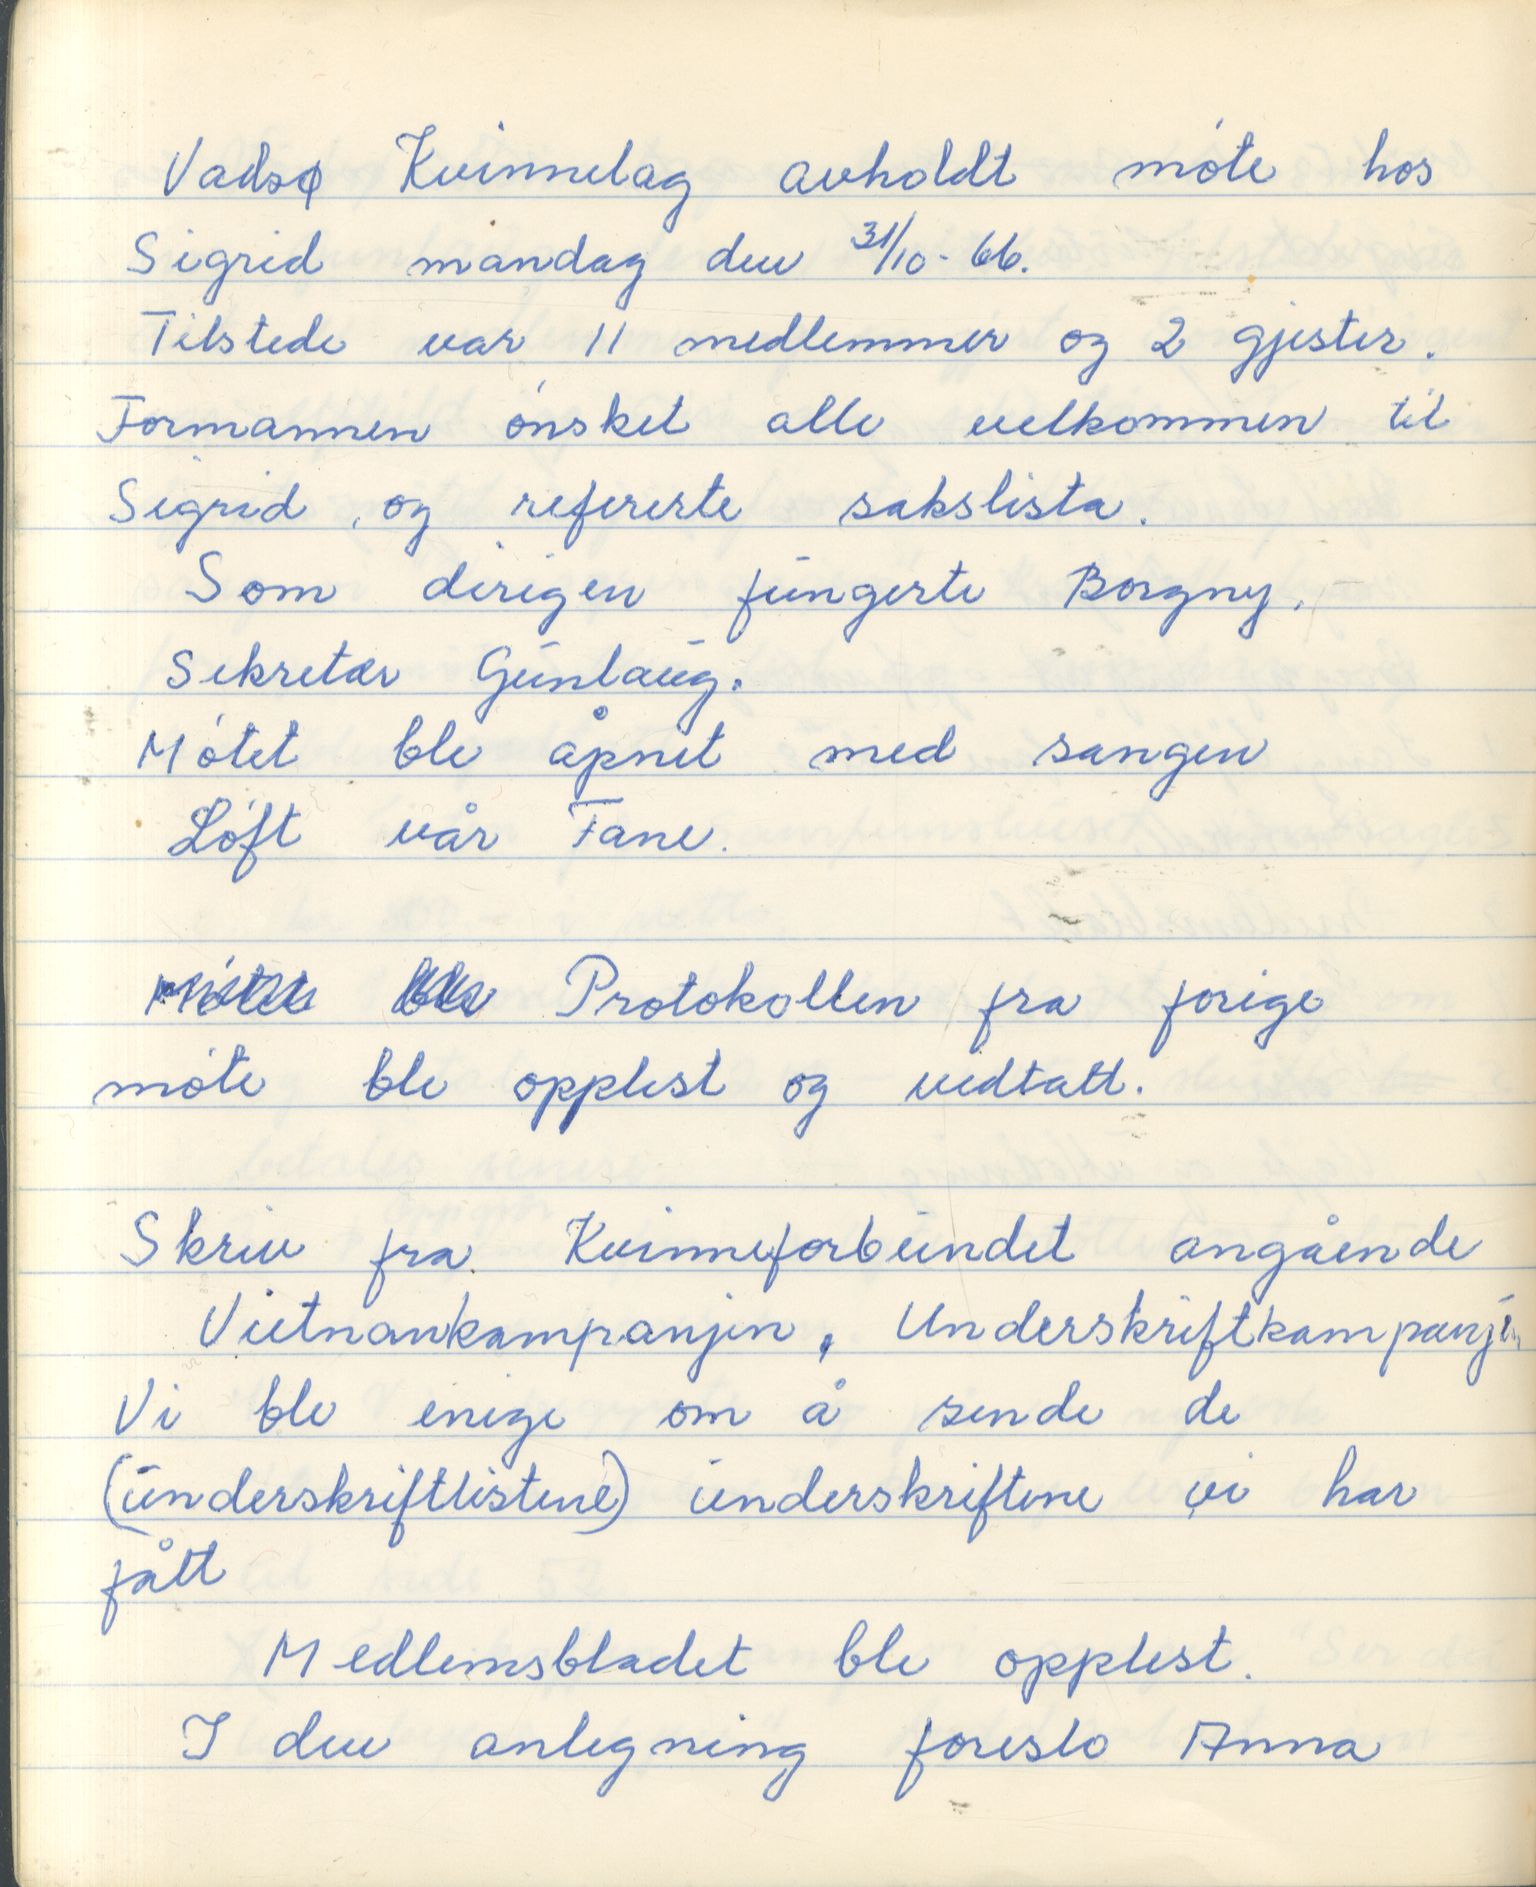 Vadsø Kvinnelag avholdt møte hos
Sigrid mandag den 31/10-66.
Tilstede var 11 medlemmer og 2 gjester.
Formannen ønsket alle velkommen til
Sigrid, og refererte sakslista.
Som dirigen fungerte Borgny.
Sekretær Gunlaug.
Møtet ble åpnet med sangen
Løft vår Fane.
Møtet ble Protokollen fra forige
møte ble opplest og vedtatt.
Skriv fra Kvinneforbundet angående
Vietnankampanjen, Underskriftkampanjen
Vi ble enige om å sende de
(underskriftlistene) underskriftene vi har
fått
Medlemsbladet ble opplest.
I den anlegning foreslo Anna